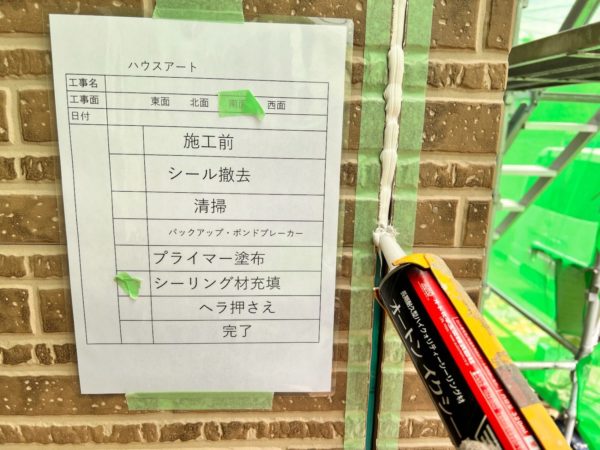 ハウスアート
工事名
工事面 東面 北面 南面 西面
日付
施工前
シール撤去
清掃
バックアップ・ボンドブレーカー
プライマー塗布
シーリング材充填
ヘラ押さえ
完了
長期耐久型ハイクオリティーシーリング材
オートン イクシー